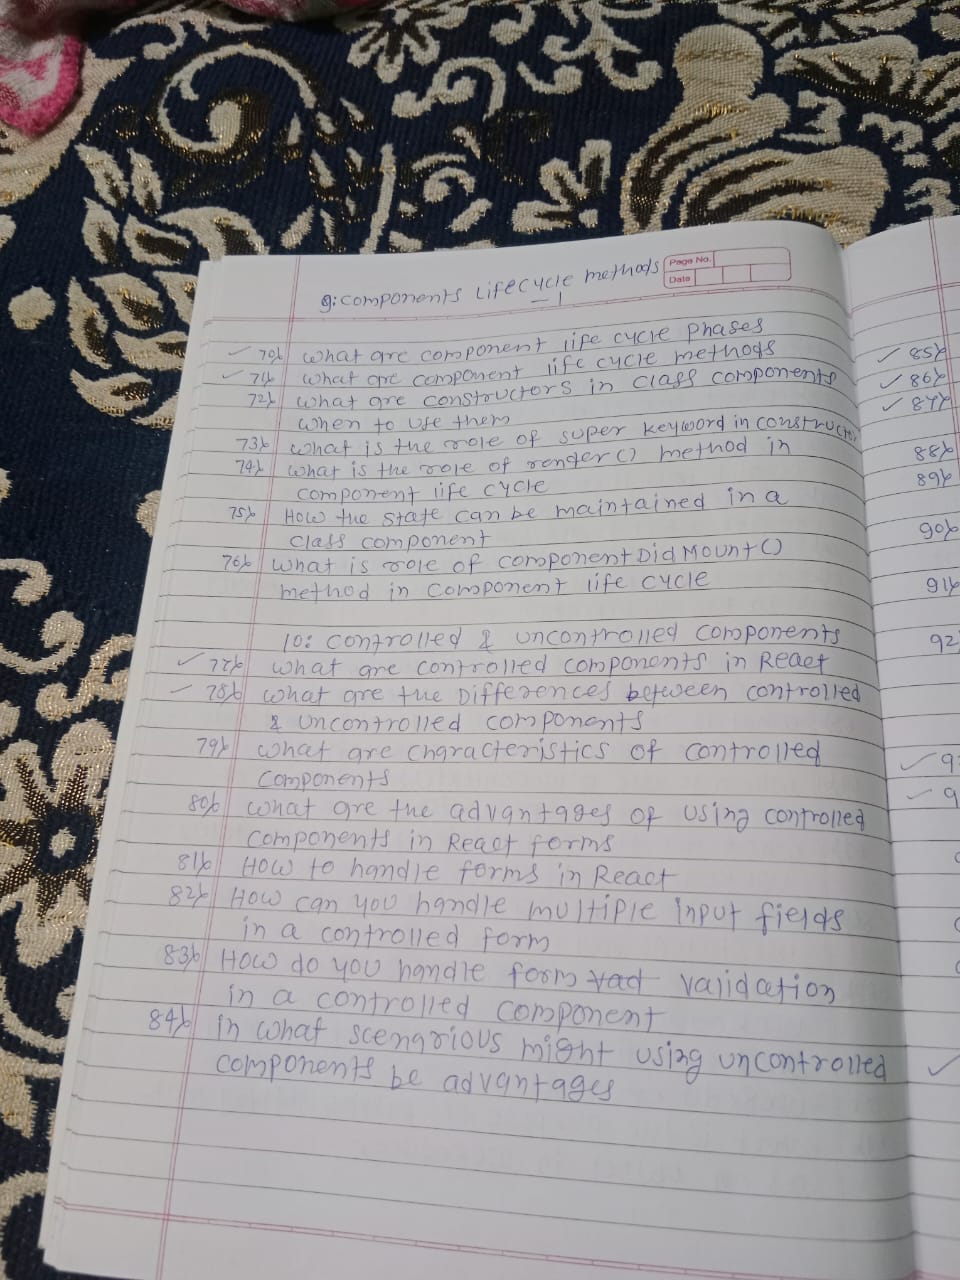 Page No.
Date
9: Components Lifecycle methods
- 1
70 What are component life cycle Phases
71 What are component life cycle methods
72 What are constructors in class components
when to use them
73 what is the role of super keyword in constructor
74 what is the role of render() method in
component life cycle
75 How the state can be maintained in a
class component
76 what is role of componentDidMount()
method in component life cycle
10: controlled & uncontrolled components
77 what are controlled components in React
78 what are the Differences between controlled
& uncontrolled components
79 what are characteristics of controlled
components
80 what are the advantages of using controlled
components in React forms
81 How to handle forms in React
82 How can you handle multiple input fields
in a controlled form
83 How do you handle form validation
in a controlled component
84 in what scenarious might using uncontrolled
components be advantages
85
86
87
88
89
90
91
92
9
9